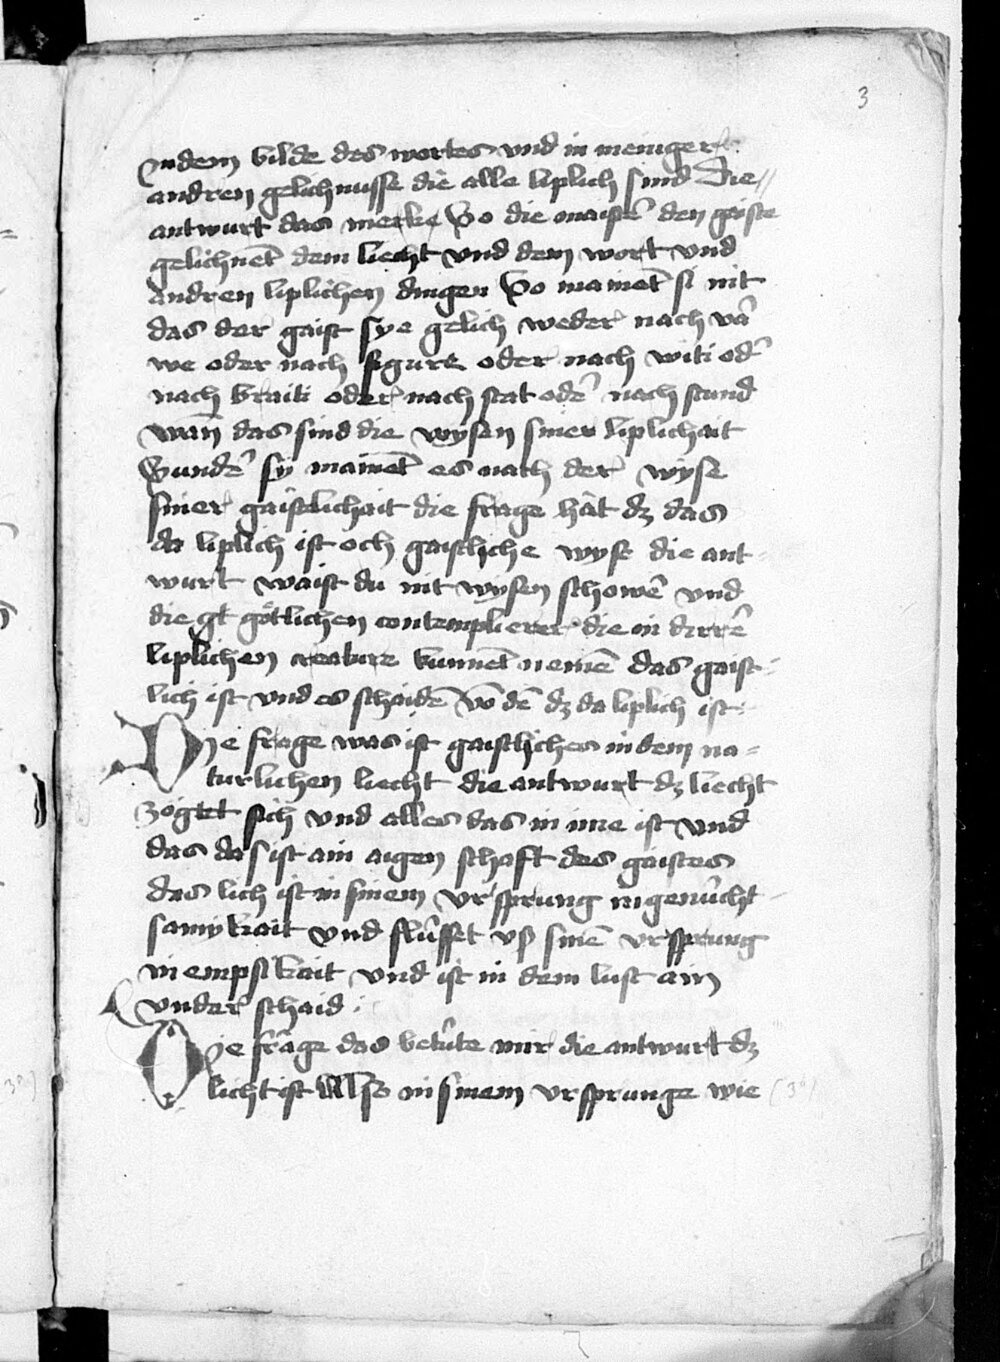 3
in dem bilde des wortes vnd in meniger
andren gelichnusse die alle liplich sind Die
antwurt das merke So die maister den gaiste
gelichnet dem liecht vnd dem wort vnd
andren liplichen dingen So mainet si nit
das der gaist sye gelich weder nach va
we oder nach figure oder nach witi od̄
nach braiti oder nach stat odē nach stund
wan̄ das sind die wysen siner liplichait
Sundē sy mainet es nach der wyse
siner gaistlichait die frage hât dz das
da liplich ist och gaistliche wyse die ant-
wurt waist du nit wysen schowē vnd
die gt gôtlichen contemplierer die in dirrē
liplichen creature kunnet nemē das gaist-
lich ist vnd es schaidē vō dē dz da liplich ist
Die frage was ist gaistliches in dem na-
turlichen liecht die antwurt dz liecht
zögtet sich vnd alles das in ime ist vnd
das das ist ain aigen schaft des gaistes
das lich ist in sinem vrsprung in genûcht
samkait vnd flûsset vß sinē vrsprung
in empsikait vnd ist in dem lust ain
vnder schaid
Die frâge das betûte mir die antwurt dz
licht ist also in sinem vrsprunge wie